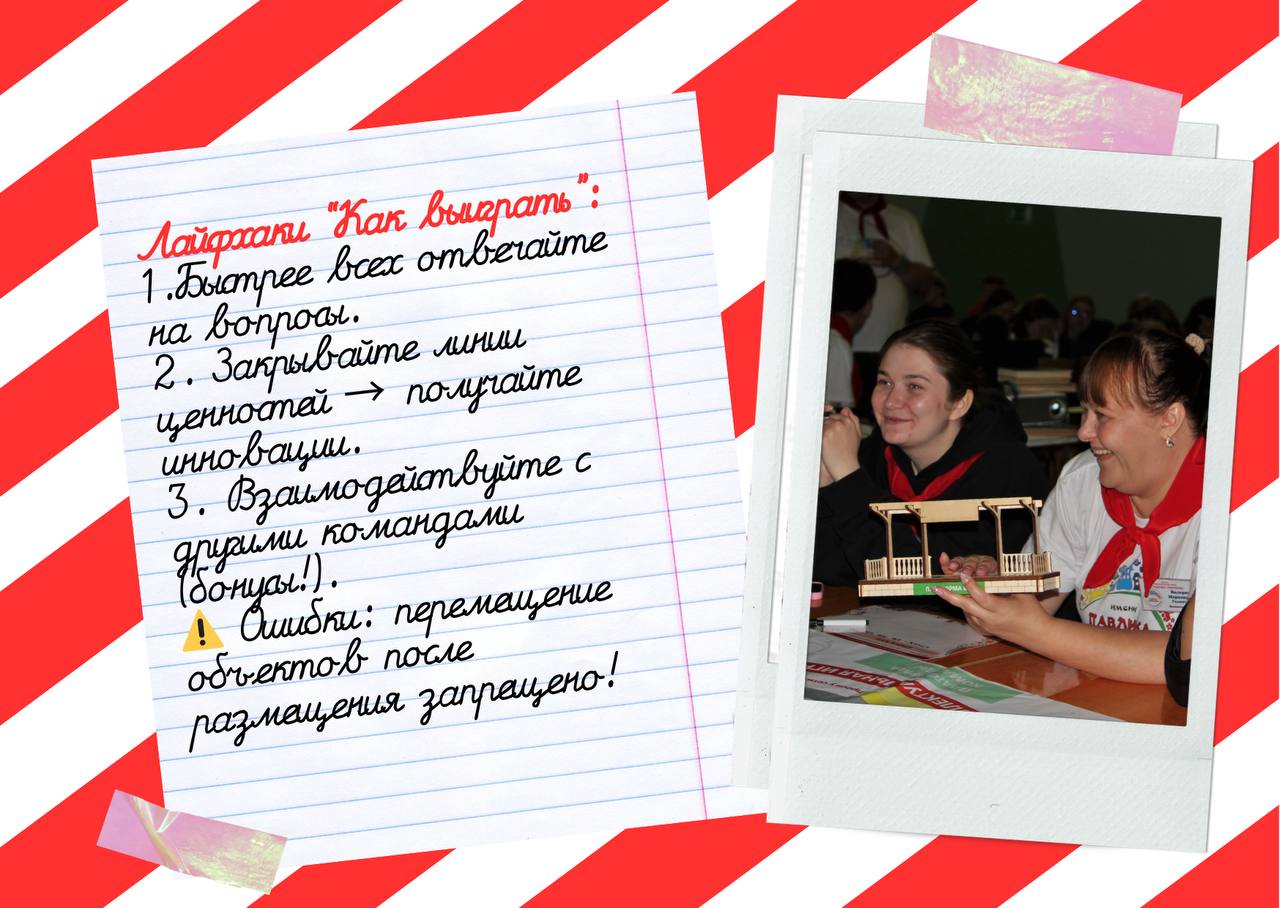 Лайфхаки "Как выиграть":
1.Быстрее всех отвечайте
на вопросы.
2. Закрывайте линии
ценностей → получайте
инновации.
3. Взаимодействуйте с
другими командами
(бонусы!).
⚠️ Ошибки: перемещение
объектов после
размещения запрещено!
ИМЕНИ